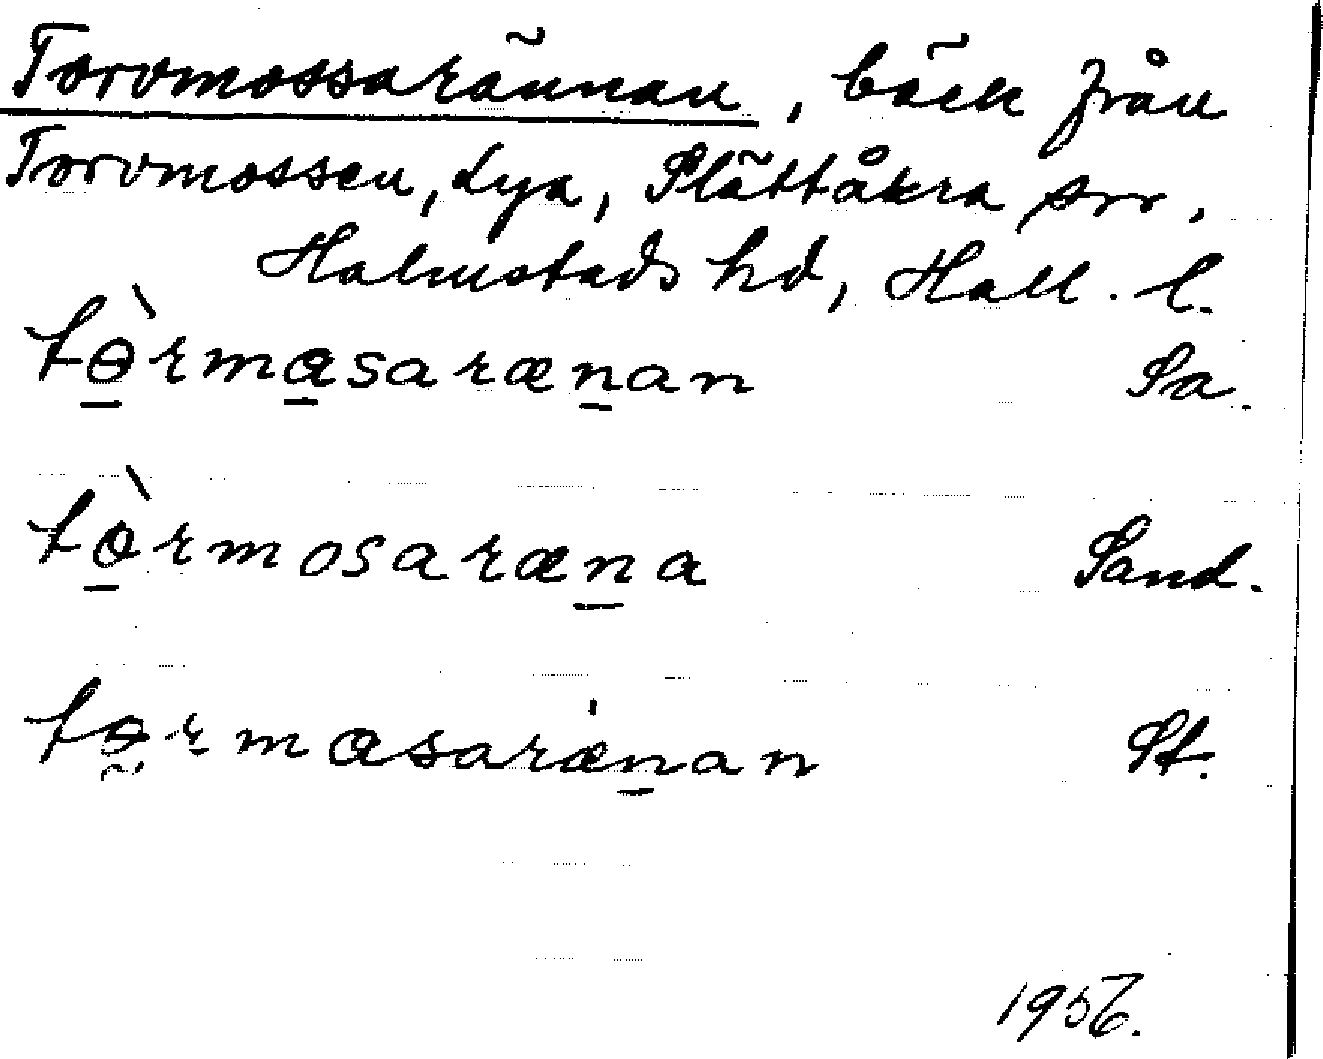 Torvmossarännan, bäck från
Torvmossen, Lya, Slättåkra sn,
Halmstads hd, Hall. l.
tɵ̀rmɑsaræṉan Sa.
tòrmosaræṉa Sand.
tɵrmɑsaræ̍ṉan St.
1956.